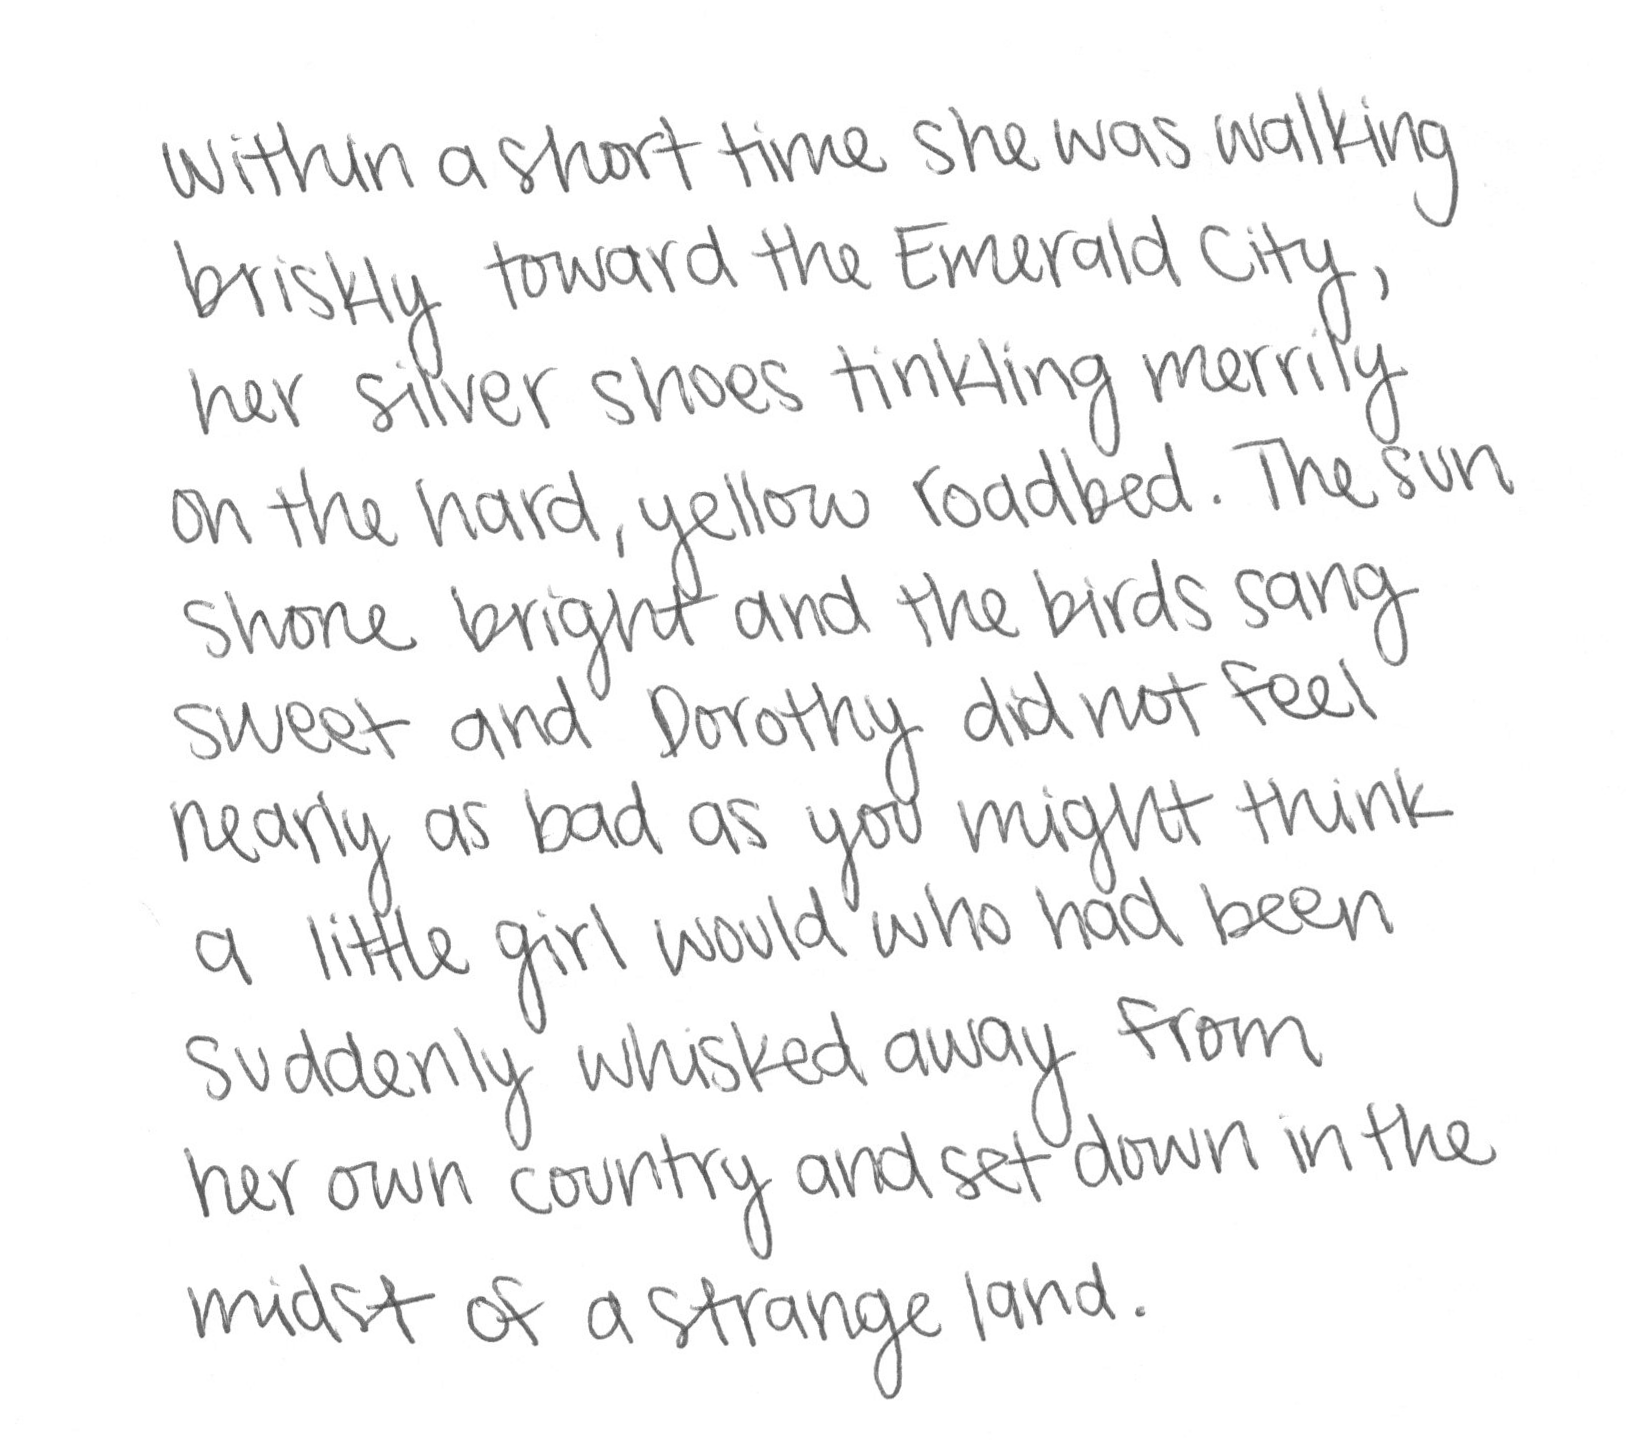 Within a short time she was walking
briskly toward the Emerald City,
her silver shoes tinkling merrily
on the hard, yellow roadbed. The sun
shone bright and the birds sang
sweet and Dorothy did not feel
nearly as bad as you might think
a little girl would who had been
suddenly whisked away from
her own country and set down in the
midst of a strange land.